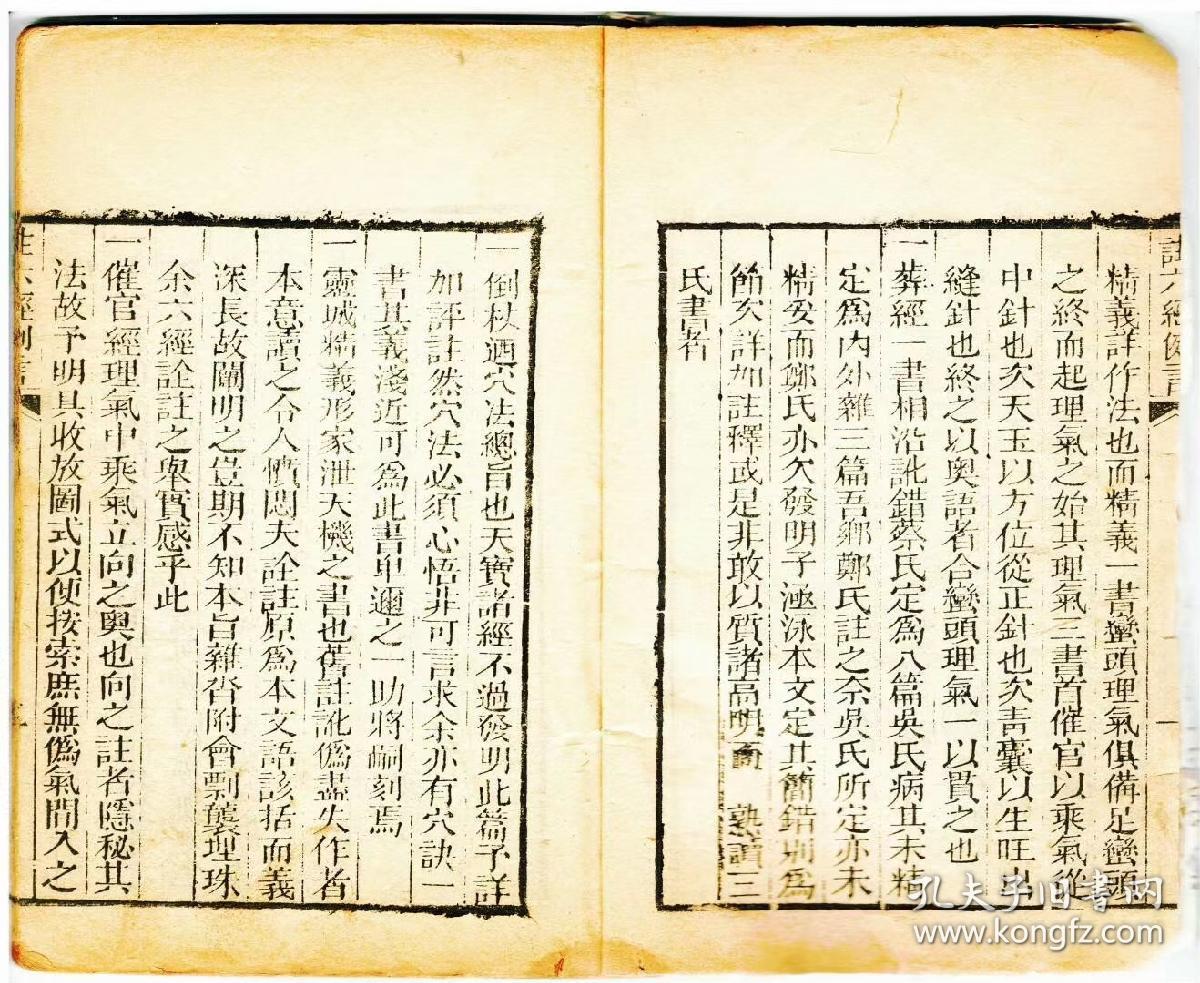 註六經例言
精義詳作法也而精義一書巒頭理氣俱備足巒頭
之終而起理氣之始其理氣三書首催官以乘氣從
中針也次天玉以方位從正針也次青囊以生旺出
縫針也終之以奧語者合巒頭理氣一以貫之也
一葬經一書相沿訛錯蔡氏定爲八篇吳氏病其未精
定爲內外雜三篇吾鄉鄭氏註之奈吳氏所定亦未
精妥而鄭氏亦欠發明予極泳本文定其簡錯別爲
節次詳加註釋或是非敢以質諸高明 熟讀三
氏書者
一倒杖迺穴法總旨也天寶諸經不過發明此篇予詳
加評註然穴法必須心悟非可言求余亦有穴訣一
書其義淺近可爲此書卑邇之一助將嗣刻焉
一靈城精義形家泄天機之書也舊註訛僞盡失作者
本意讀之令人憤悶夫詮註原爲本文語該括而義
深長故闡明之豈期不知本旨雜沓附會剽襲理珠
余六經詮註之舉實感乎此
一催官經理氣中乘氣立向之奧也向之註者隱秘其
法故予明其收放圖式以便按索庶無僞氣間入之
註六經例言
孔夫子旧书网
www.kongfz.com